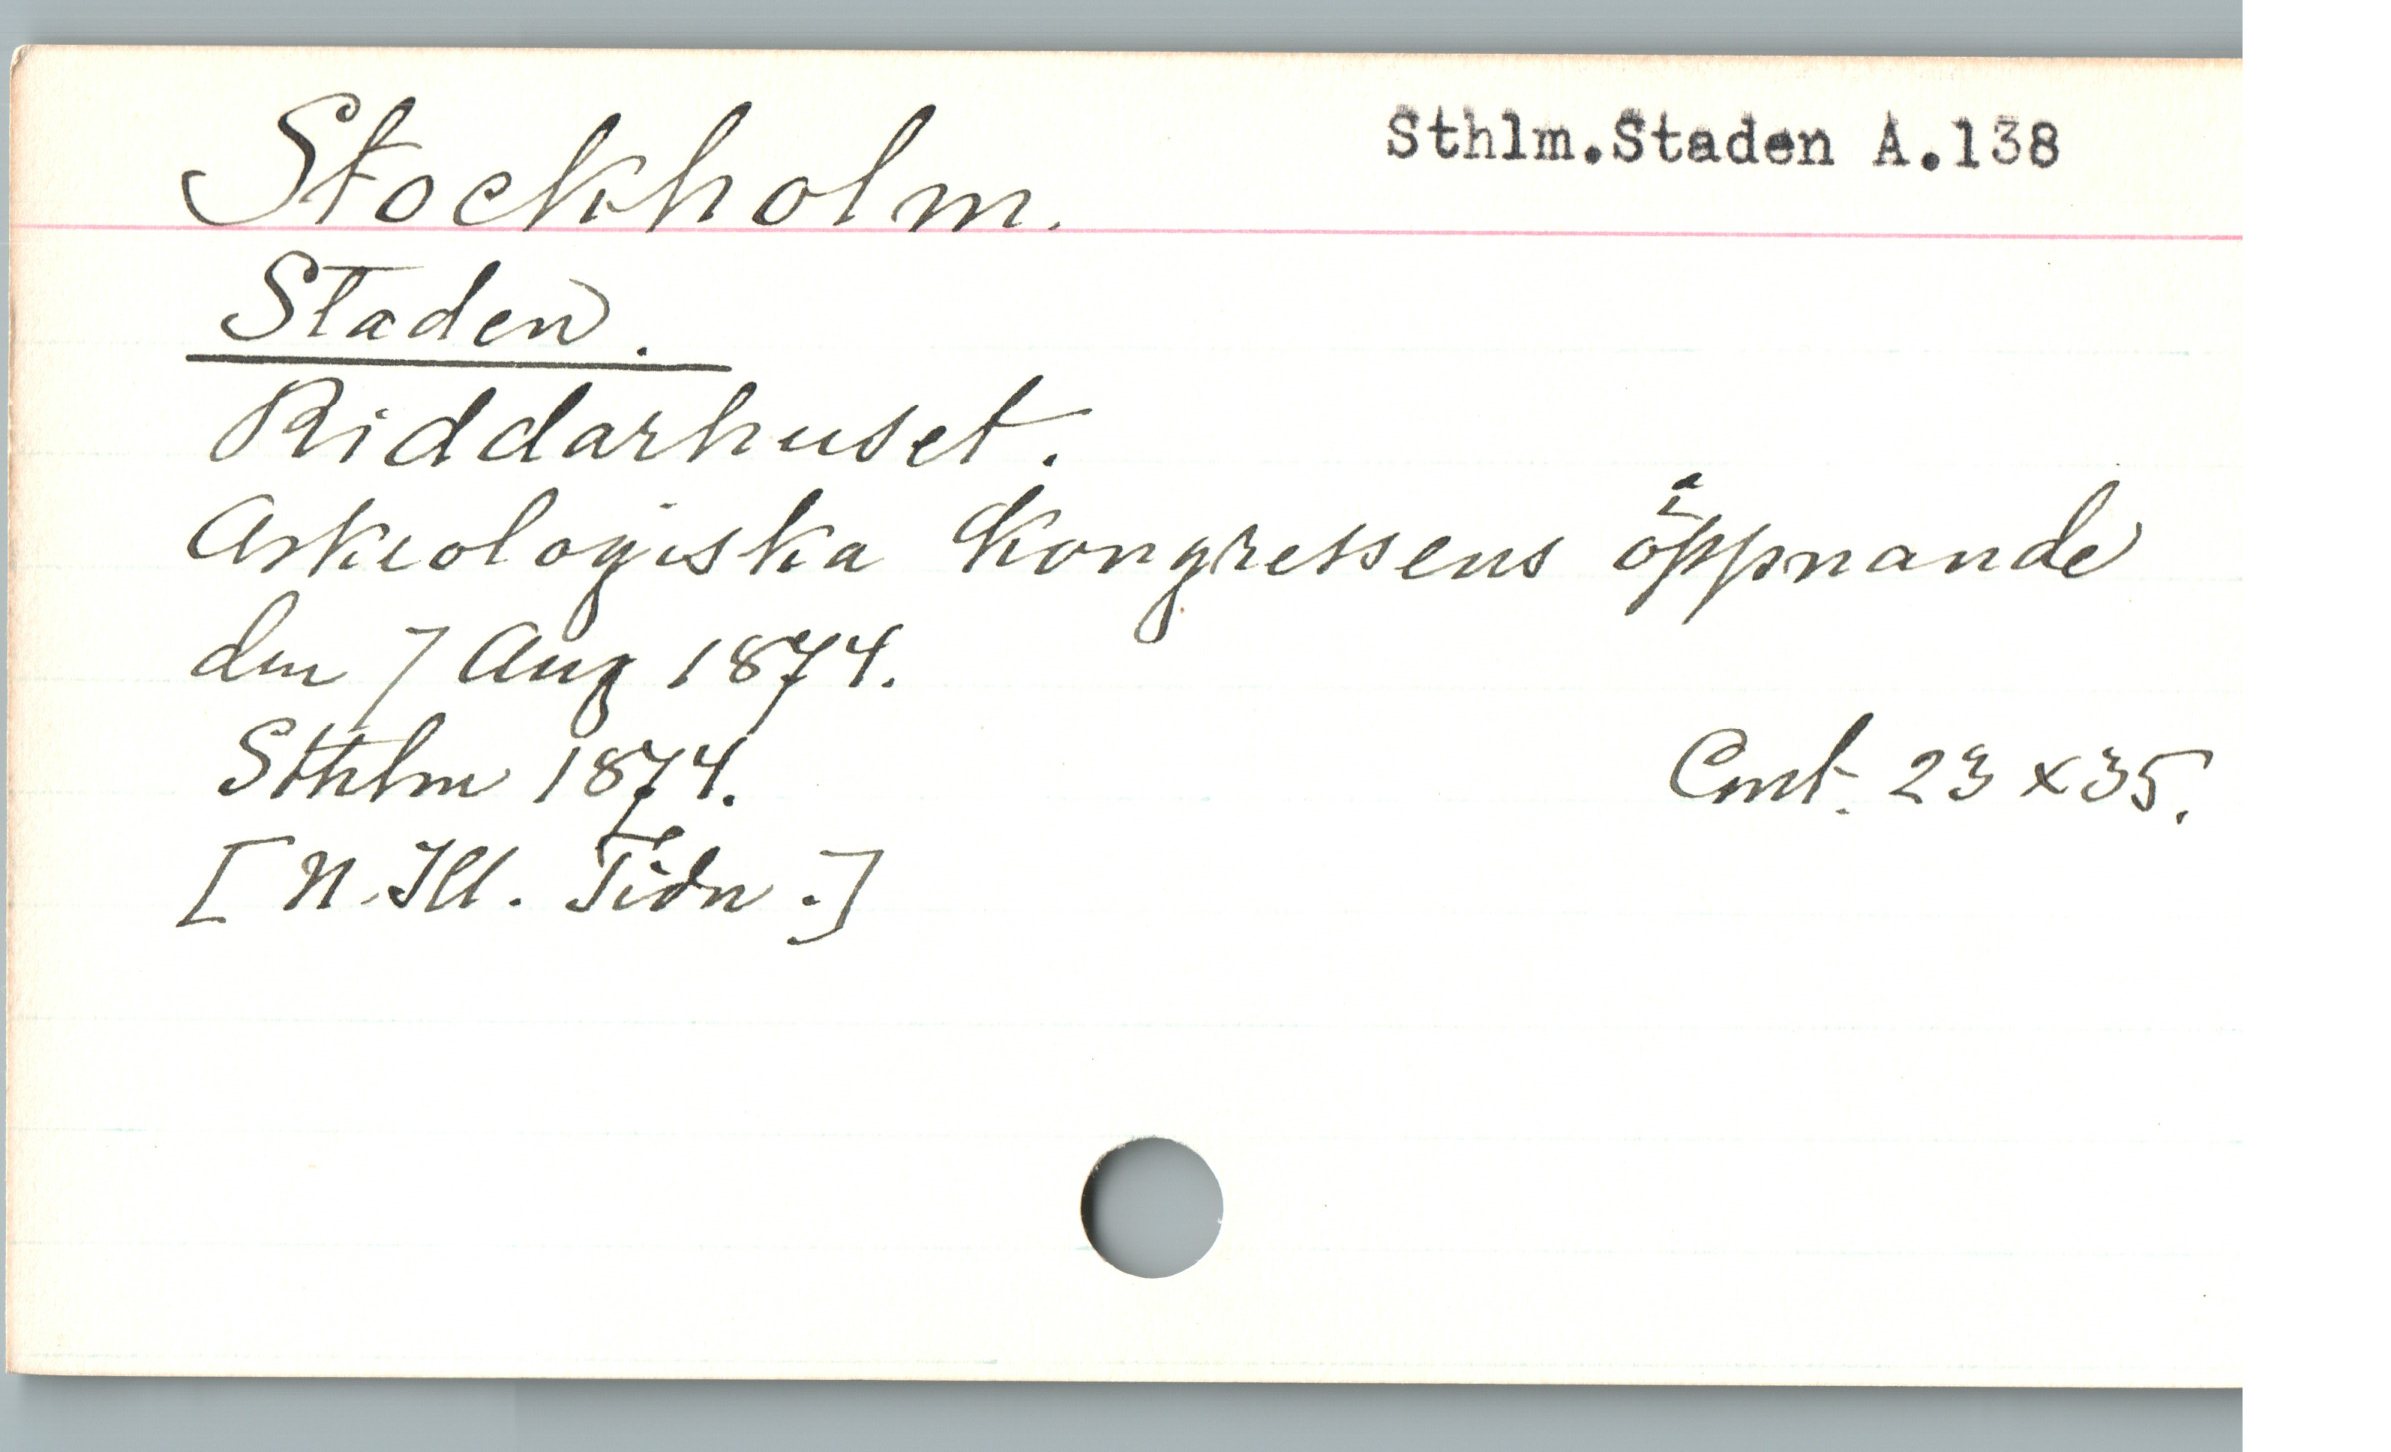 Stockholm.
Sthlm.Staden A.138
Staden.
Riddarhuset.
Arkeologiska Kongressens öppnande
den 7 Aug 1874.
Sthlm 1874.
Cmt. 23 x 35.
[N. Ill. Tidn.]